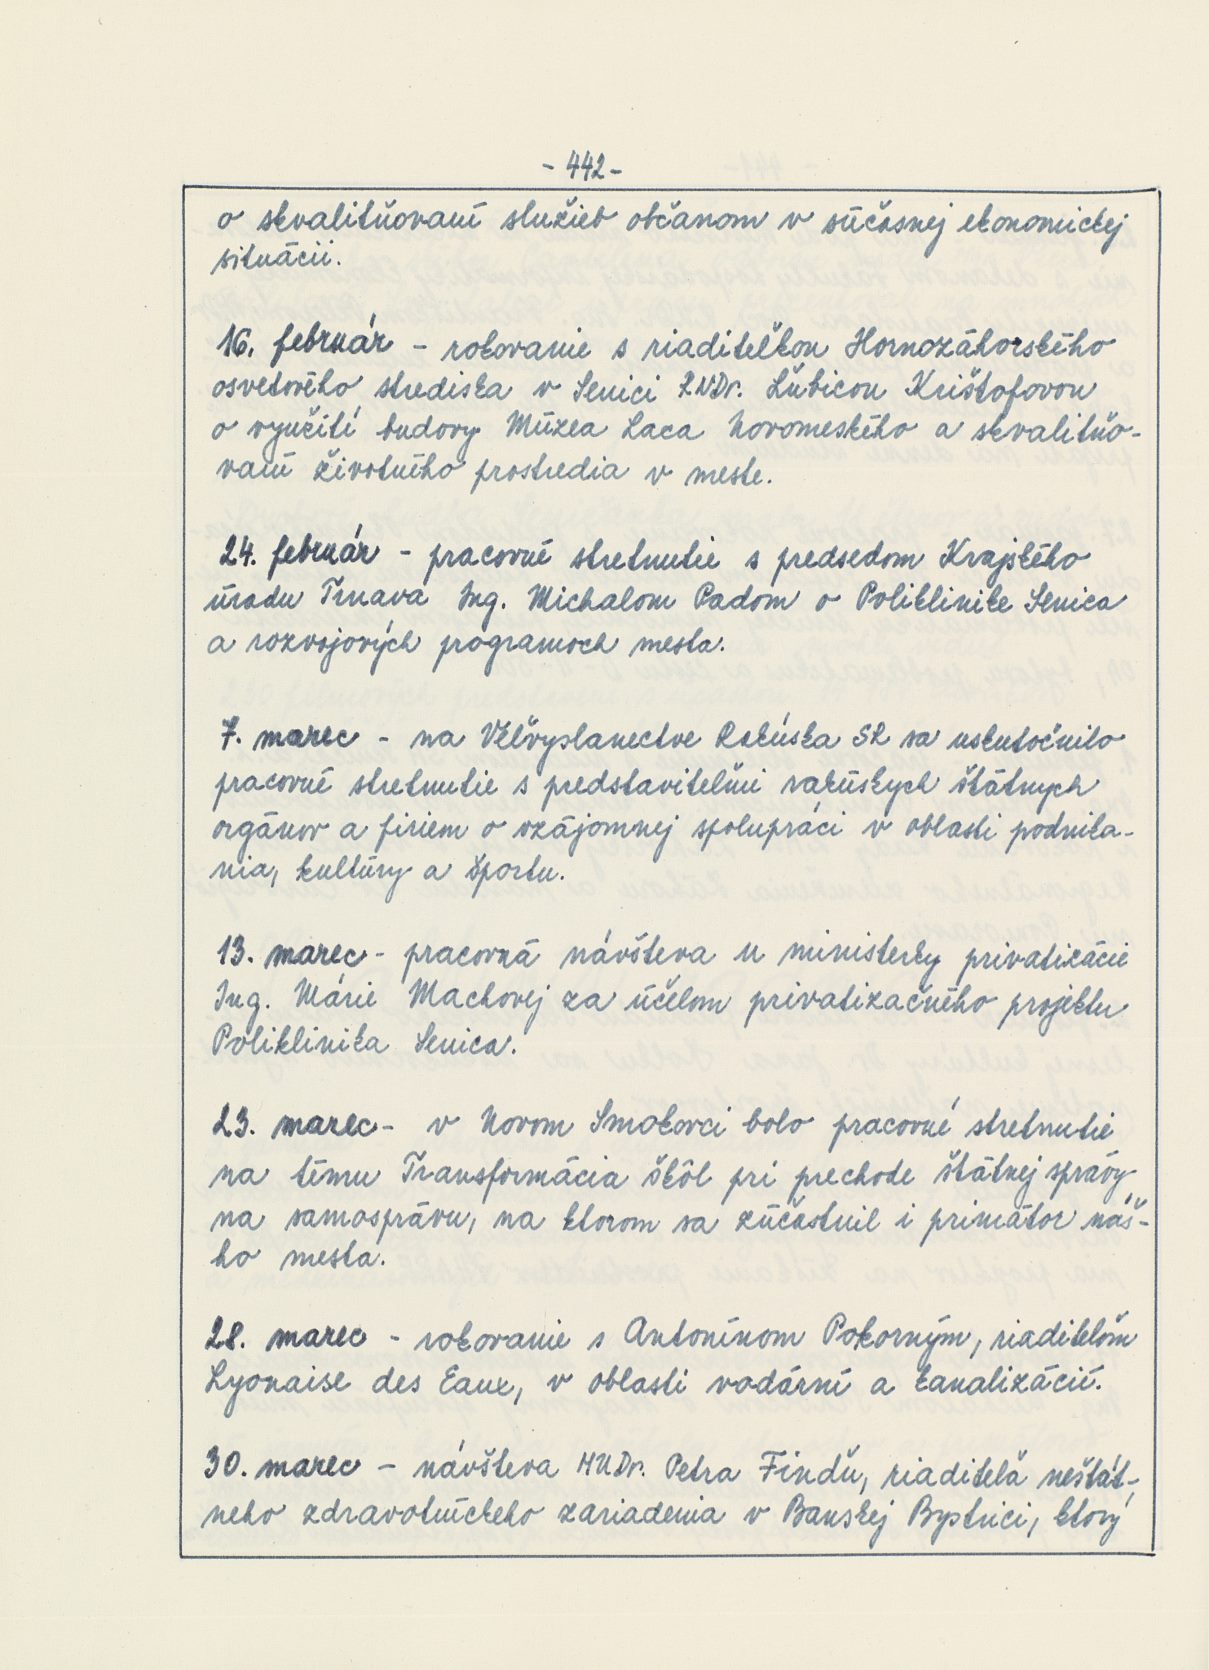 - 442 -
o skvalitňovaní služieb občanom v súčasnej ekonomickej
situácii.
16. február - rokovanie s riaditeľkou Hornozáhorského
osvetového strediska v Senici RNDr. Ľubicou Krištofovou
o využití budovy Múzea Laca Novomeského a skvalitňo-
vaní životného prostredia v meste.
24. február - pracovné stretnutie s predsedom Krajského
úradu Trnava Ing. Michalom Padom o Poliklinike Senica
a rozvojových programoch mesta.
7. marec - na Veľvyslanectve Rakúska SR sa uskutočnilo
pracovné stretnutie s predstaviteľmi rakúskych štátnych
orgánov a firiem o vzájomnej spolupráci v oblasti podnika-
nia, kultúry a športu.
13. marec - pracovná návšteva u ministerky privatizácie
Ing. Márie Machovej za účelom privatizačného projektu
Poliklinika Senica.
23. marec - v Novom Smokovci bolo pracovné stretnutie
na tému Transformácia škôl pri prechode štátnej správy
na samosprávu, na ktorom sa zúčastnil i primátor náš-
ho mesta.
28. marec - rokovanie s Antonínom Pokorným, riaditeľom
Lyonaise des Eaux, v oblasti vodární a kanalizácií.
30. marec - návšteva MUDr. Petra Findu, riaditeľa neštát-
neho zdravotníckeho zariadenia v Banskej Bystrici, ktorý